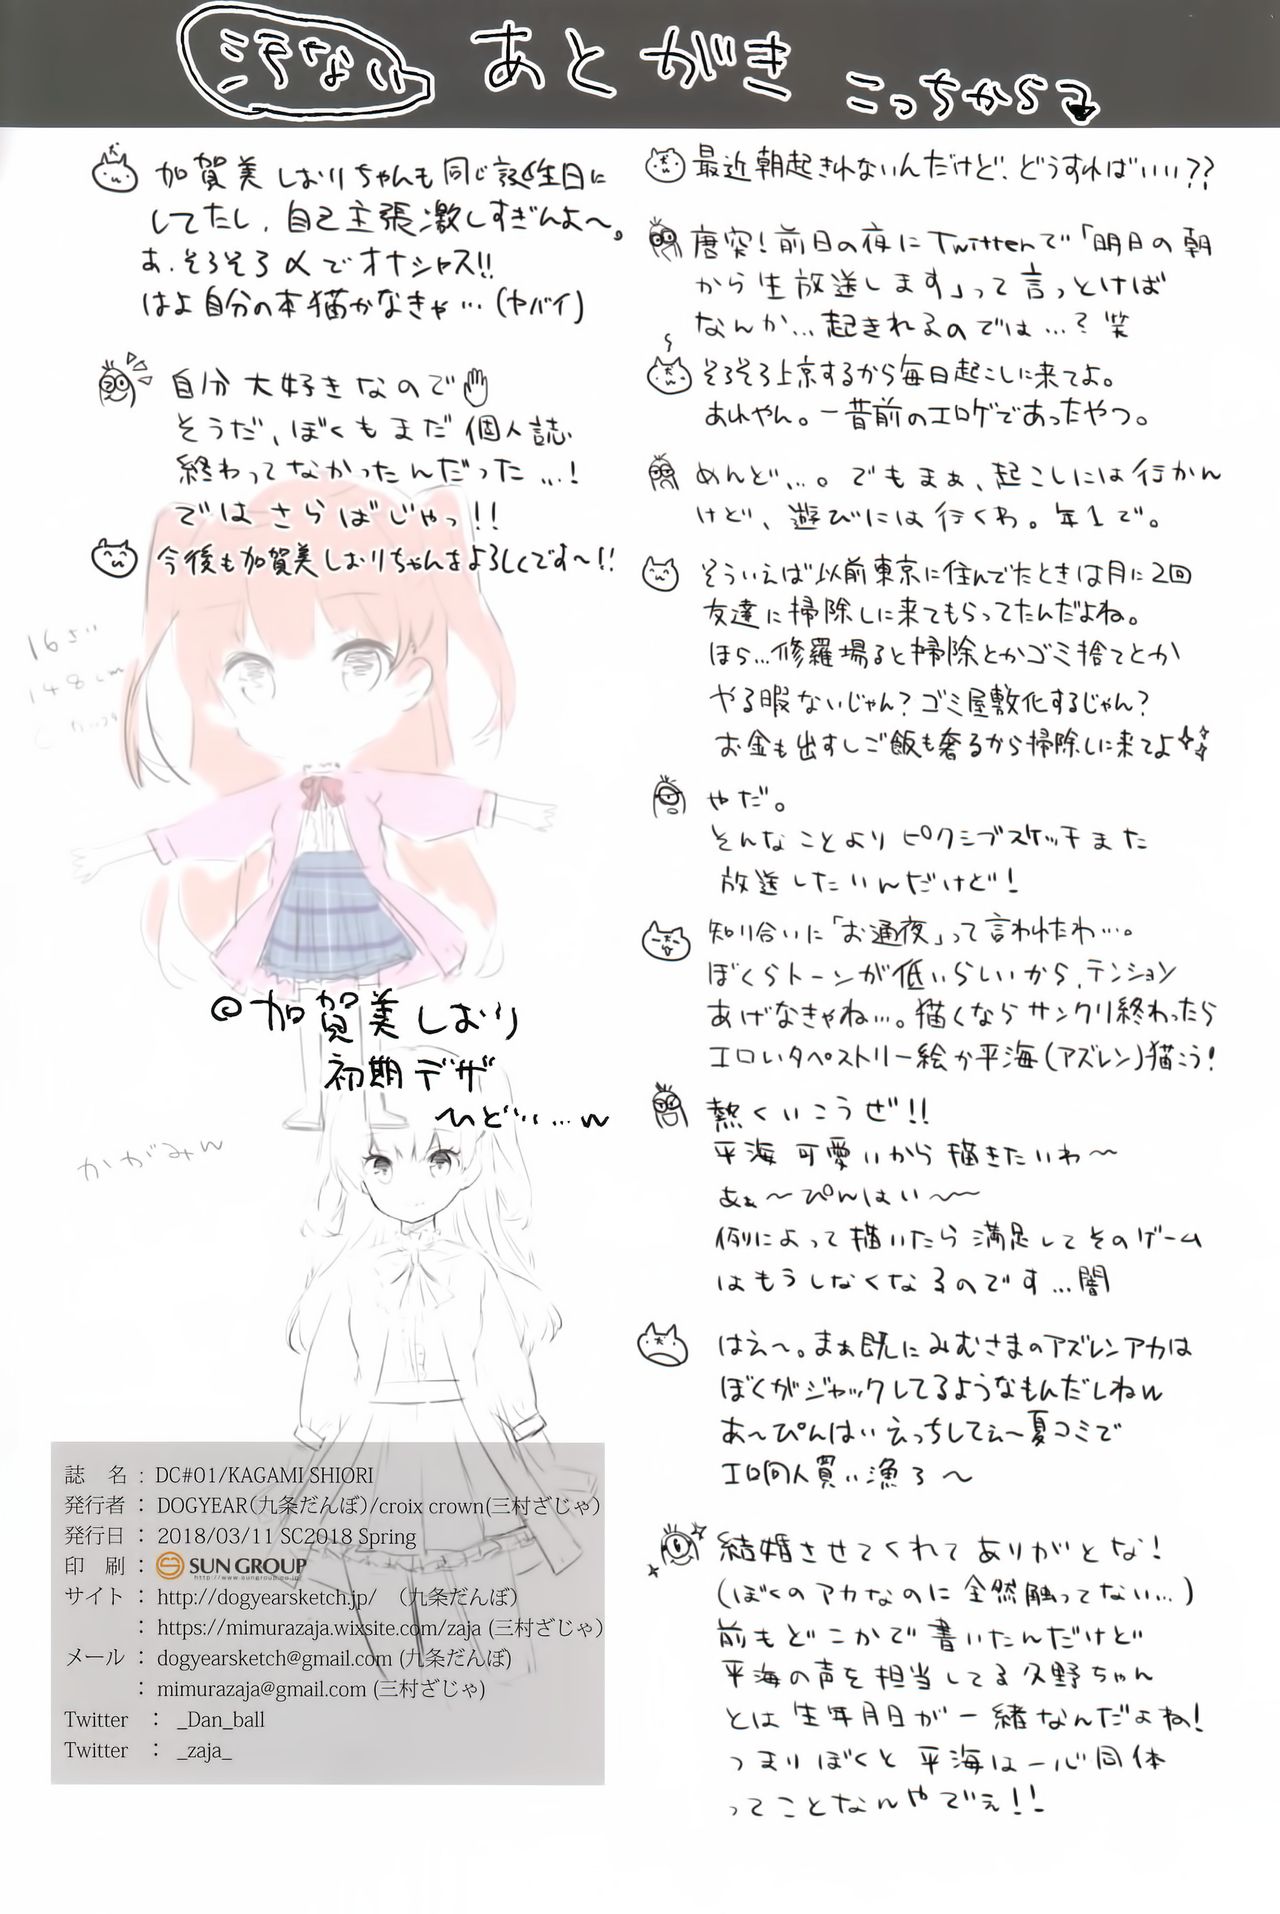 汚ない あとがき こっちから
最近朝起きれないんだけど、どうすればいい??
唐突!前日の夜にTwitterで「明日の朝
から生放送します」って言っとけば
なんか…起きれるのでは…?笑
そろそろ上京するから毎日起こしに来てよ。
あれやん。一昔前のエロゲであったやつ。
めんど…。でもまぁ、起こしには行かん
けど、遊びには行くわ。年1で。
そういえば以前東京に住んでたときは月に2回
友達に掃除しに来てもらってたんだよね。
ほら…修羅場ると掃除とかゴミ捨てとか
やる暇ないじゃん?ゴミ屋敷化するじゃん?
お金も出すしご飯も奢るから掃除しに来てよ
やだ。
そんなことよりピクシブスケッチまた
放送したいんだけど!
知り合いに「お通夜」って言われたわ…。
ぼくらトーンが低いらしいから、テンション
あげなきゃね…。描くならサンクリ終わったら
エロいタペストリー絵か平海(アズレン)描こう!
熱くいこうぜ!!
平海可愛いから描きたいわ〜
あぁ〜ぴんはい〜
例によって描いたら満足してそのゲーム
はもうしなくなるのです…闇
はえ〜。まぁ既にみむさまのアズレンアカは
ぼくがジャックしてるようなもんだしねw
あ〜ぴんはいえっちしてぇ〜夏コミで
エロ同人買い漁ろ〜
結婚させてくれてありがとな!
(ぼくのアカなのに全然触ってない…)
前もどこかで書いたんだけど
平海の声を担当してる久野ちゃん
とは生年月日が一緒なんだよね!
つまりぼくと平海は一心同体
ってことなんやでぇ!!
加賀美しおりちゃんも同じ誕生日に
してたし、自己主張激しすぎんよ〜。
あ、そろそろ〆でオナシャス!!
はよ自分の本描かなきゃ…(ヤバイ)
自分大好きなので
そうだ、ぼくもまだ個人誌
終わってなかったんだった…!
ではさらばじゃっ!!
今後も加賀美しおりちゃんをよろしくです〜!!
16さい
148cm
◎加賀美しおり
初期デザ
〜ひど……w
かがみん
誌 名 : DC#01/KAGAMI SHIORI
発行者 : DOGYEAR(九条だんぼ)/croix crown(三村ざじゃ)
発行日 : 2018/03/11 SC2018 Spring
印 刷 : SUN GROUP
http://www.sungroup.co.jp
サイト : http://dogyearsketch.jp/ (九条だんぼ)
: https://mimurazaja.wixsite.com/zaja (三村ざじゃ)
メール : dogyearsketch@gmail.com (九条だんぼ)
: mimurazaja@gmail.com (三村ざじゃ)
Twitter : _Dan_ball
Twitter : _zaja_